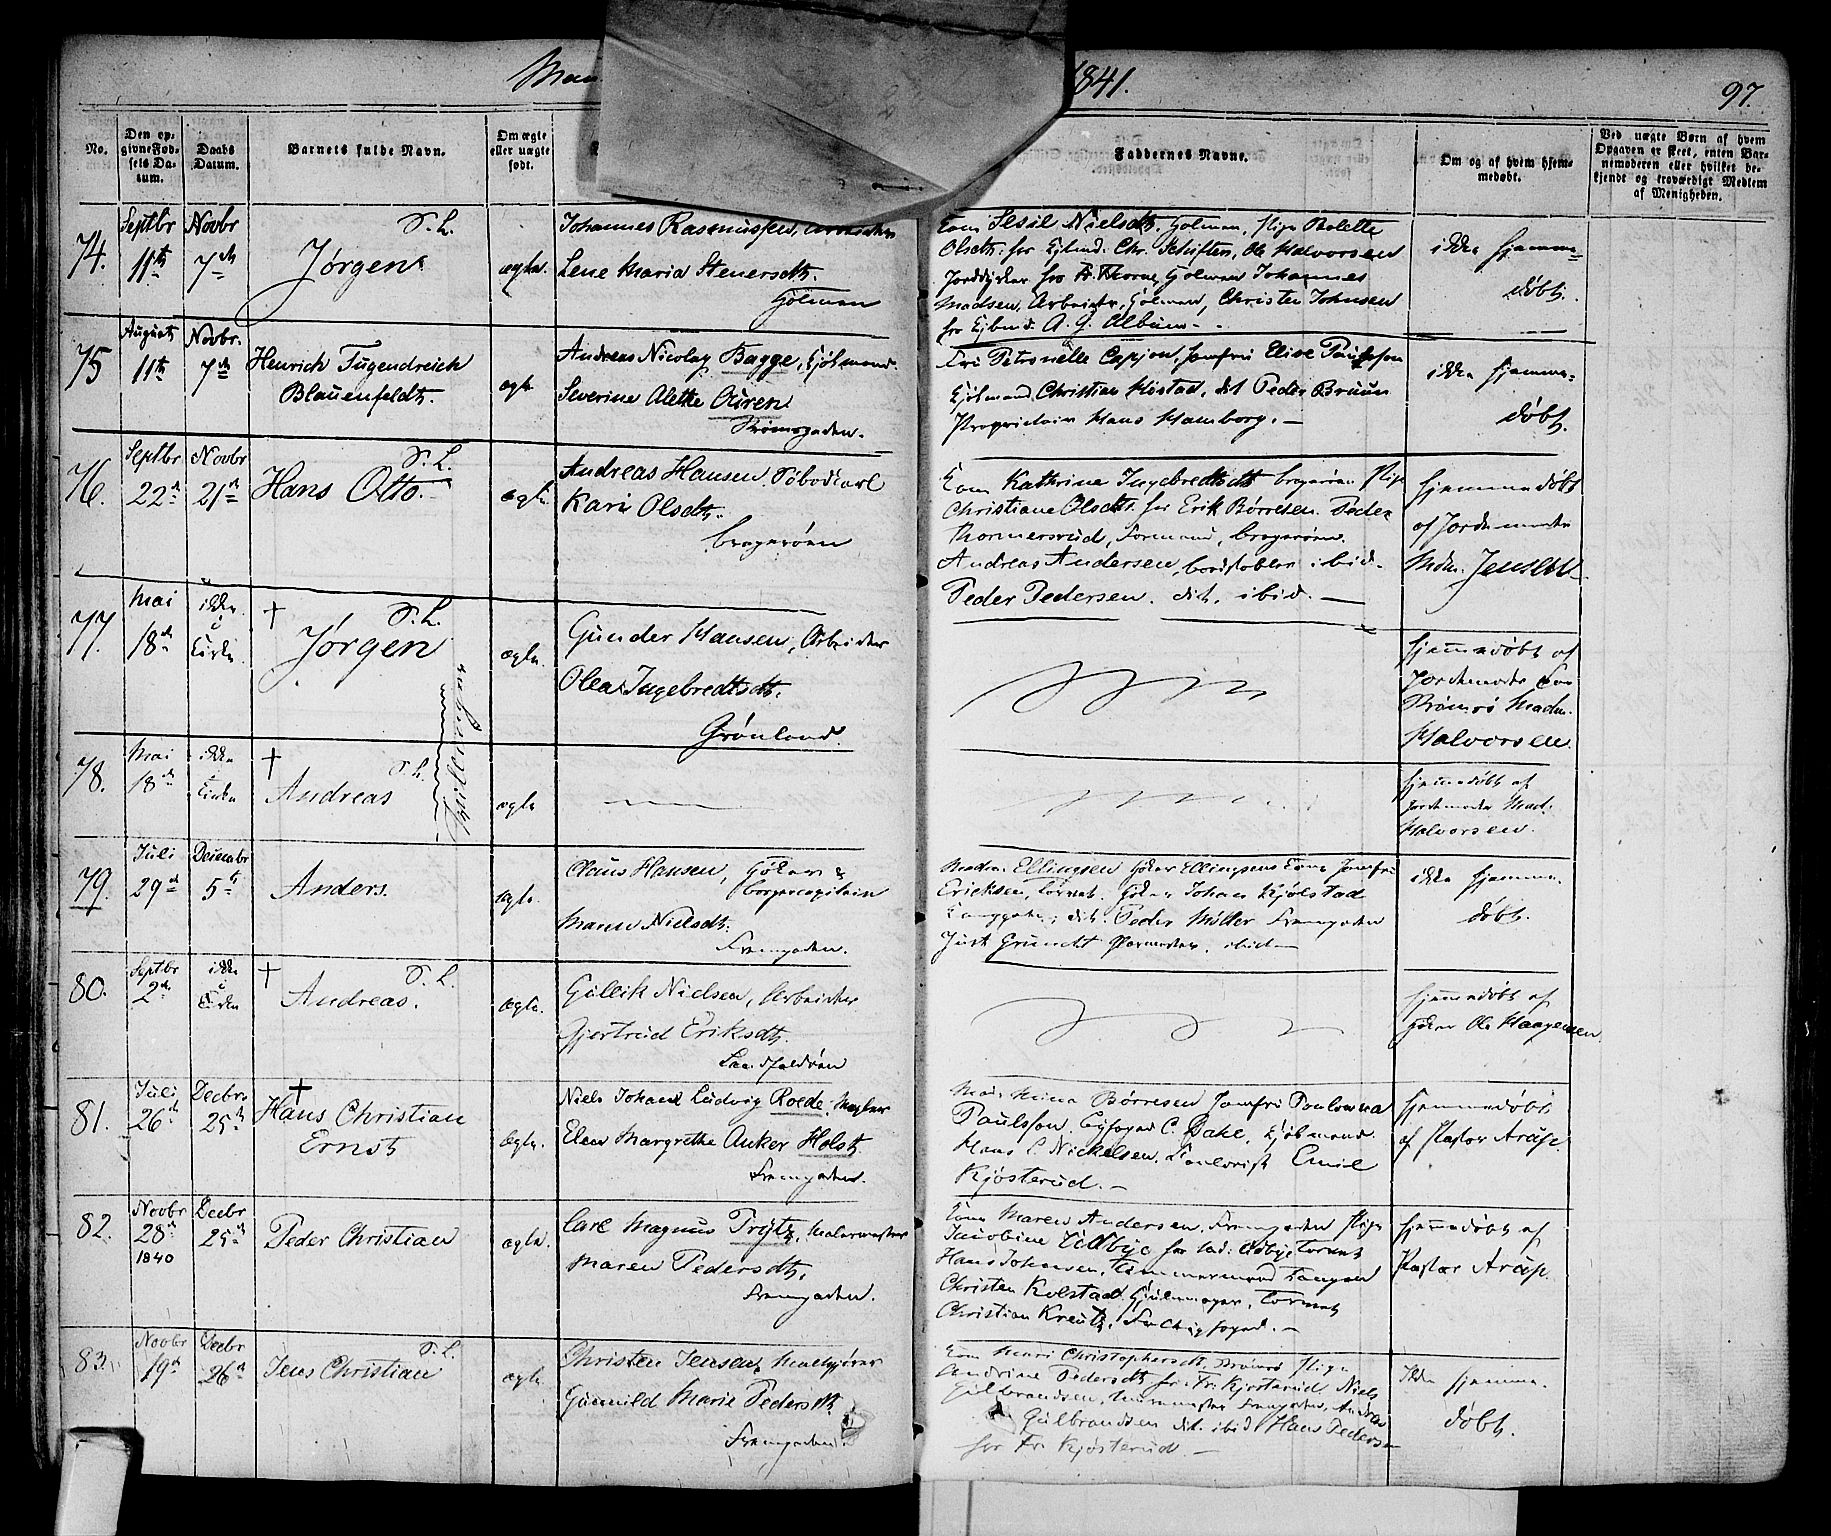 1841.
97.
No.
Den op-
givne Fød-
sels Da-
tum.
Daabs
Datum.
Barnets fulde Navn.
Om ægte
eller uægte
født.
Faddernes Navne.
Om og af hvem hjem-
medøbt.
Ved uægte Børn af hvem
Opgaven er skeet, enten Bar-
nemoderen eller hvilket be-
kjendt og troværdigt Medlem
af Menigheden.
74.
Septbr
11th
Novbr
7de
Jørgen
ægte.
Johannes Rasmussen, Arbeider
Lene Maria Stenersdtr.
Gölman
Kone Sesil Nielsdtr. Gölman, Pige Bolette
Olsdtr. for Chr. Schiften, Ole Halvorsen
Johannes
Madsen, Arbeider, Gölman, Christen Johnsen
A. G. Album.
ikke hjemme-
døbt.
75
August
11th
Novbr.
7de
Henrich Tugendreich
Blauenfeldt.
ægte
Andreas Nicolay Bagge, Kjøbmand.
Severine Alethe Ouren
Strømsgaden.
Fru Petronelle Capjon, Jomfru Elise Paulsson
Kjøbmand Christian Kiøstad, dit Peder Bruun
Proprietair Hans Hamborg. —
ikke hjemme-
døbt.
76.
Septbr
22de
Novbr
21de
Hans Otto.
ægte
Andreas Hansen
Kari Olsdtr.
bragerøen
Kone Kathrine Ingebredtsdtr bragerøen Pige
Christiane Olsdtr. for Erik Børresen. Peder
Thormersrud, Formand, bragerøen.
Andreas Andersen, ibid.
Peder Pedersen. dit. ibid. —
hjemmedøbt
af Jordemoder
77.
Mai
18de
ikke
i
Kirken
† Jørgen
Tvillinger
ægte.
Gunder Hansen, Arbeider
Olea Ingebredtsdtr.
Grønland.
hjemmedøbt af
Jordemoder
Strømsø Madm.
Halvorsen.
78.
Mai
18de
ikke
i
Kirken
† Andreas
ægte
hjemmedøbt af
Jordemoder Mad.
Halvorsen.
79.
Juli
29de
Decembr
5te
Anders.
ægte.
Claus Hansen, Høker &
borgercapitain
Maren Nielsdtr.
Fremgaden.
Madm. Ellingsen Høker Ellingsens Kone Jomfru
Ericksen, Torvet. Høker Johan Kjølstad
Langgaden, dit. Peder Møller Fremgaden
Just Grundt ibid —
ikke hjemme-
døbt.
80.
Septbr
2de
ikke
i
Kirken
† Andreas.
ægte.
Gullik Nielsen, Arbeider
Gjertrud Eriksdtr.
Landfaldøen
hjemmedøbt af
Høker Ole Haagensen
81.
Juli
26de
Decbr.
25de
†
Hans Christian
Ernst
ægte.
Niels Johan Ludvig Roede, Mægler
Elen Margrethe Anker Holst
Fremgaden.
Mad. Mina Børresen Jomfru Poulowna
Paulsson. Byfoged C. Dahl, Kjøbmand
Hans C. Nickelsen. Emil
Kjøsterud. —
hjemmedøbt
af Pastor Arup.
82.
Novbr
28de
1840
Decbr
25de
Peder Christian
ægte.
Carl Magnus Trytz, Malermester
Maren Pedersdtr.
Fremgaden.
Kone Maren Andersen. Fremgaden Pige
Jacobine Udbye
Hans Johansen. Tømmermand Tangen
Christen Kolstad. Torvet
Christian Kreutz. —
hjemmedøbt af
Pastor Arup.
83.
Novbr
19de
Decbr
26de
Jens Christian
ægte
Christen Jensen,
Gunnild Marie Pedersdtr.
Fremgaden.
Kone Mari Christophersdtr, Strømsø Pige
Andrine Pedersdtr for Fr. Kjøsterud, Niels
Gulbrandsen, Murmester Fremgaden,
Gulbrandsen dit. ibid Hans Pedersen
for Fr. Kjøsterud —
Ikke hjemme-
døbt.